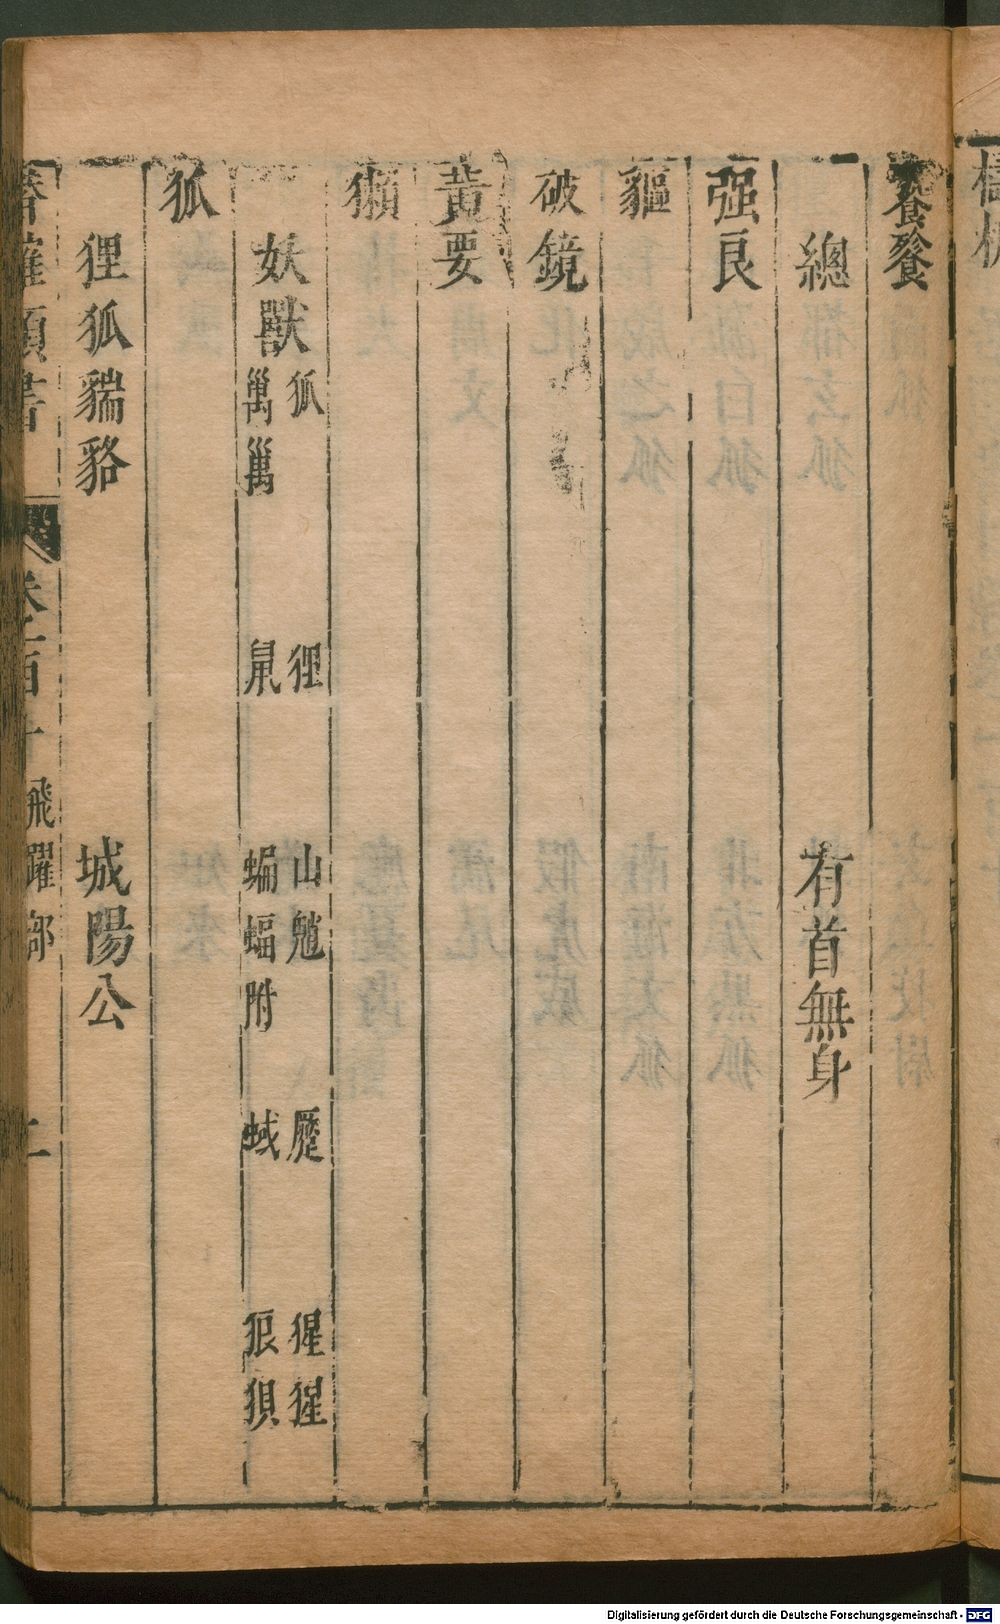 饕餮
總 有首無身
强良
貙
破鏡
黃要
獺
妖獸 狐 狸 山魈 蜃 猩猩
𤟤𤟤 鼠 蝙蝠附 蜮 狼狽
狐
狸狐貒貉 城陽公
唐類書 卷二百十 飛躍部 二
Digitalisierung gefördert durch die Deutsche Forschungsgemeinschaft - DFG